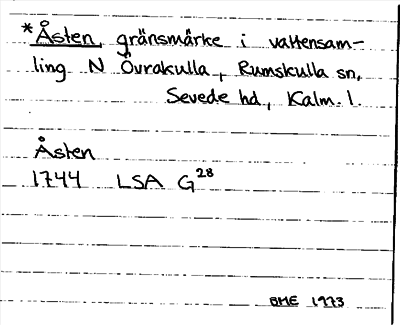 *Åsten, gränsmärke i vattensam-
ling N Övrakulla, Rumskulla sn,
Sevede hd, Kalm. l.
Åsten
1744 LSA G28
BME 1973